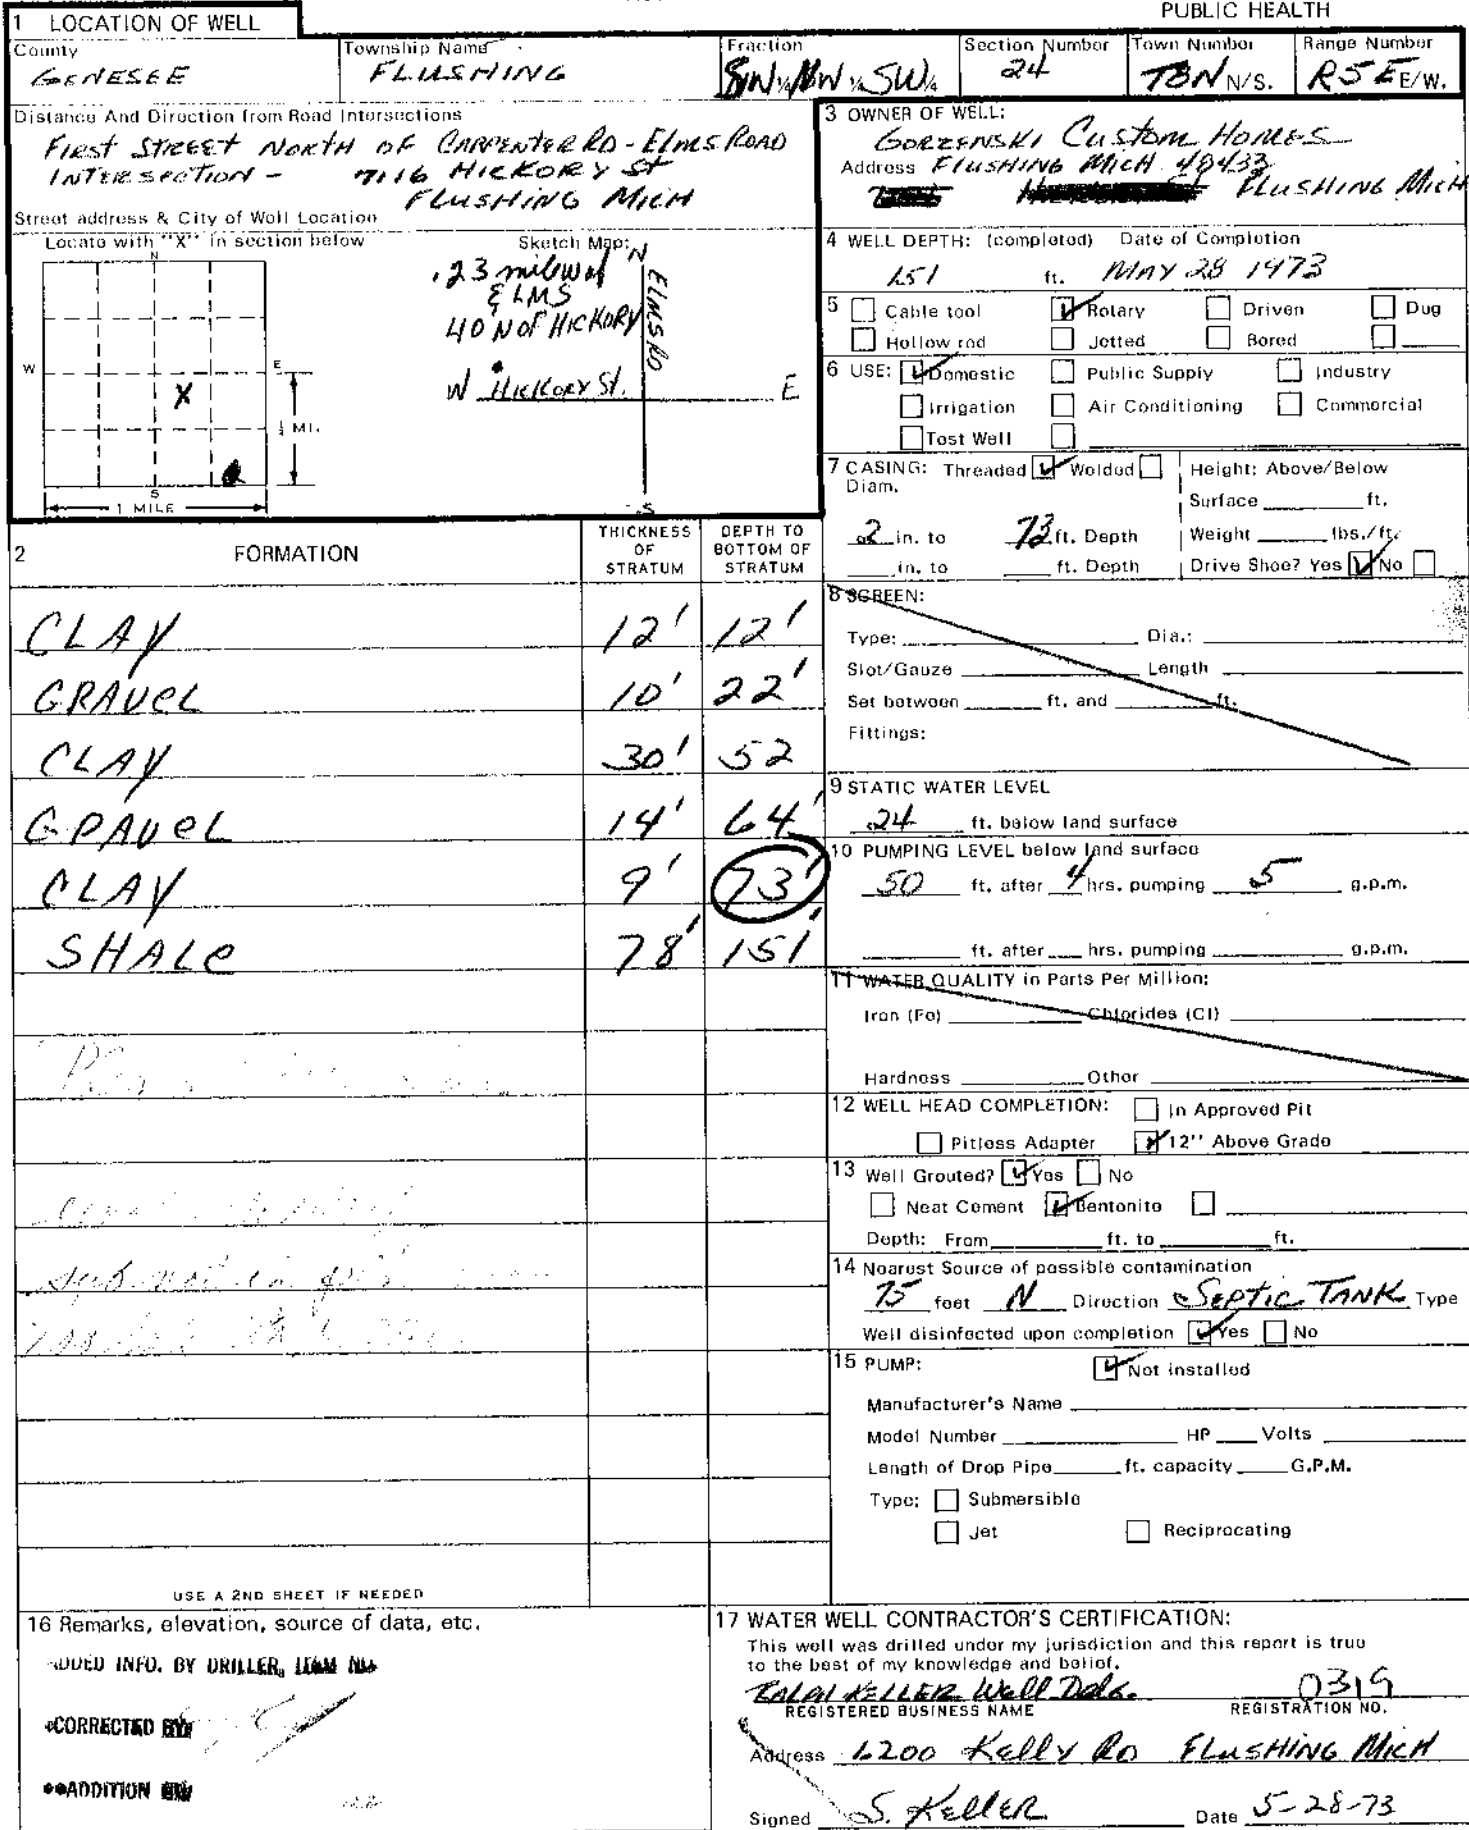 PUBLIC HEALTH
1 LOCATION OF WELL
County
GENESEE
Township Name
FLUSHING
Fraction
SW ¼ NW ¼ SW ¼
Section Number
24
Town Number
T8N N/S.
Range Number
R5E E/W.
Distance And Direction from Road Intersections
FIRST STREET NORTH OF CARPENTER RD - ELMS ROAD
INTERSECTION - 7116 HICKORY ST
FLUSHING MICH
Street address & City of Well Location
Locate with "X" in section below
N
W
E
S
X
½ MI.
1 MILE
Sketch Map:
N
.23 mile W of
ELMS
40 N OF HICKORY
ELMS RD
W HICKORY ST. E
S
3 OWNER OF WELL:
GORZENSKI CUSTOM HOMES
Address FLUSHING MICH 48433
FLUSHING MICH
4 WELL DEPTH: (completed) Date of Completion
151 ft. MAY 28 1973
5 Cable tool Rotary Driven Dug
Hollow rod Jetted Bored
6 USE: Domestic Public Supply Industry
Irrigation Air Conditioning Commercial
Test Well
7 CASING: Threaded Welded
Diam.
2 in. to 73 ft. Depth
in. to ft. Depth
Height: Above/Below
Surface ft.
Weight lbs./ft.
Drive Shoe? Yes No
2 FORMATION
THICKNESS OF STRATUM
DEPTH TO BOTTOM OF STRATUM
CLAY 12' 12'
GRAVEL 10' 22'
CLAY 30' 52
GRAVEL 14' 64'
CLAY 9' 73'
SHALE 78' 151'
USE A 2ND SHEET IF NEEDED
8 SCREEN:
Type: Dia.:
Slot/Gauze Length
Set between ft. and ft.
Fittings:
9 STATIC WATER LEVEL
24 ft. below land surface
10 PUMPING LEVEL below land surface
50 ft. after 4 hrs. pumping 5 g.p.m.
ft. after hrs. pumping g.p.m.
11 WATER QUALITY in Parts Per Million:
Iron (Fe) Chlorides (Cl)
Hardness Other
12 WELL HEAD COMPLETION: In Approved Pit
Pitless Adapter 12" Above Grade
13 Well Grouted? Yes No
Neat Cement Bentonite
Depth: From ft. to ft.
14 Nearest Source of possible contamination
75 feet N Direction SEPTIC TANK Type
Well disinfected upon completion Yes No
15 PUMP: Not installed
Manufacturer's Name
Model Number HP Volts
Length of Drop Pipe ft. capacity G.P.M.
Type: Submersible
Jet Reciprocating
16 Remarks, elevation, source of data, etc.
ADDED INFO. BY DRILLER, ITEM NO.
*CORRECTED BY
**ADDITION BY
17 WATER WELL CONTRACTOR'S CERTIFICATION:
This well was drilled under my jurisdiction and this report is true
to the best of my knowledge and belief.
KELLER Well Drlg. 0319
REGISTERED BUSINESS NAME REGISTRATION NO.
Address 6200 Kelly RD FLUSHING MICH
Signed S. KELLER Date 5-28-73